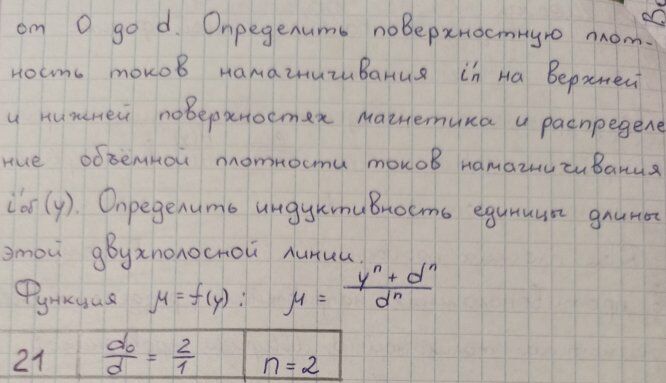 от 0 до d. Определить поверхностную плот-
ность токов намагничивания i'п на верхней
и нижней поверхностях магнетика и распределе
ние объёмной плотности токов намагничивания
i'об (y). Определить индуктивность единицы длины
этой двухполосной линии.
Функция μ = f(y) : μ = (yⁿ + dⁿ) / dⁿ
21 d₀/d = 2/1 n = 2